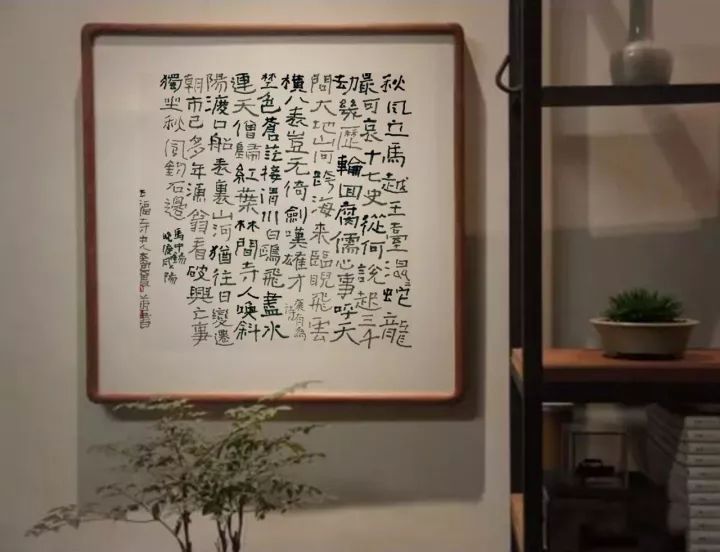 秋風立馬越王臺混混蛇龍
最可哀十七史從何說起三千
劫幾歷輪回腐儒心事呼天
問大地山河跨海來臨睨飛雲
橫八表豈无倚劍嘆雄才
康有為
詩
埜色蒼茫接渭川白鷗飛盡水
連天僧歸紅葉林間寺人喚斜
陽渡口船表裏山河猶往日變遷
朝市已多年漁翁看破興亡事
獨坐秋風釣石邊
馬中錫
晚渡咸陽